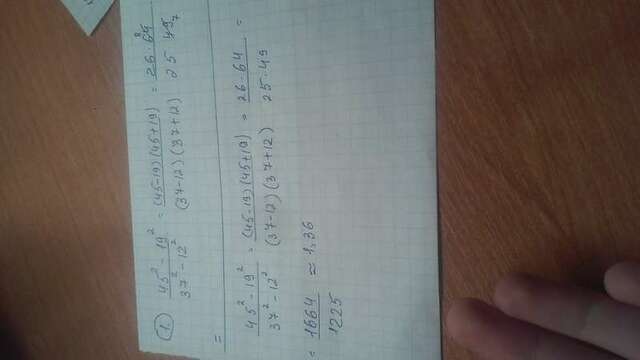 1. (45² - 19²)/(37² - 12²) = ((45-19)(45+19))/((37-12)(37+12)) = (26 · 64 8)/(25 49 7)
=
(45² - 19²)/(37² - 12²) = ((45-19)(45+19))/((37-12)(37+12)) = (26 · 64)/(25 · 49) =
= 1664/1225 ≈ 1,36